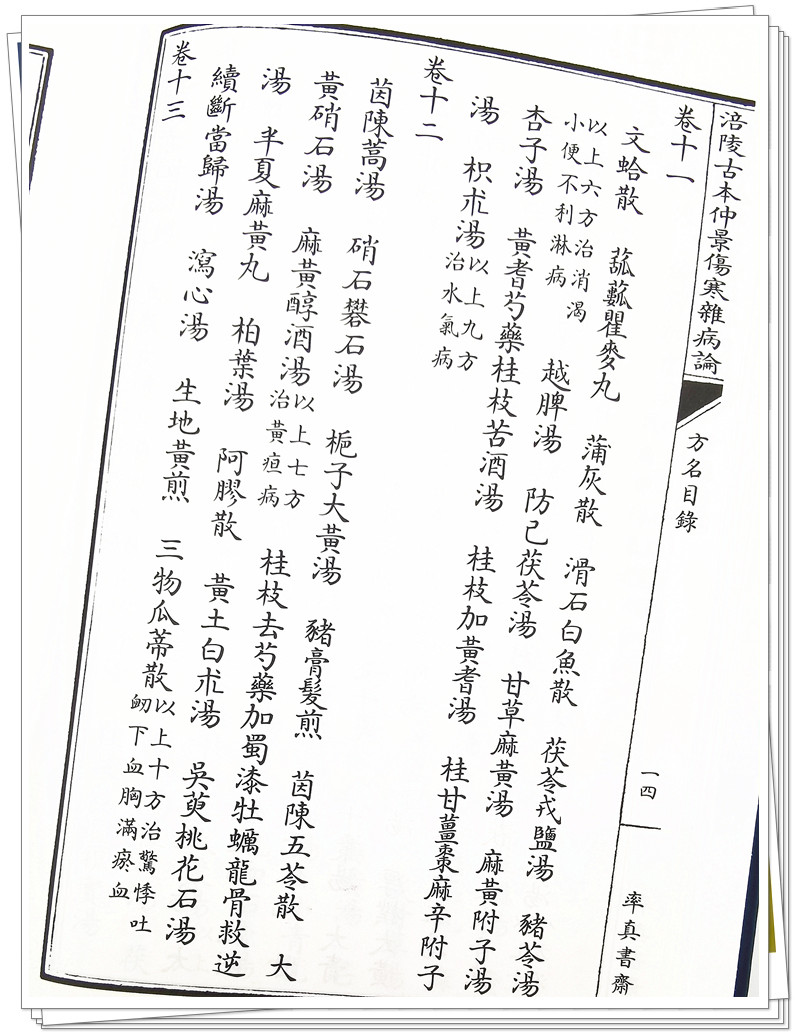 涪陵古本仲景傷寒雜病論 方名目錄 一四 率真書齋
卷十一
文蛤散 菰蓏瞿麥丸 蒲灰散 滑石白魚散 茯苓戎鹽湯 豬苓湯
以上六方治消渴
小便不利淋病
越脾湯 防己茯苓湯 甘草麻黃湯 麻黃附子湯
杏子湯 黃耆芍藥桂枝苦酒湯 桂枝加黃耆湯 桂甘薑棗麻辛附子
湯 枳朮湯
以上九方
治水氣病
卷十二
茵陳蒿湯 硝石礬石湯 梔子大黃湯 豬膏髮煎 茵陳五苓散 大
黃硝石湯 麻黃醇酒湯
以上七方
治黃疸病
桂枝去芍藥加蜀漆牡蠣龍骨救逆
湯 半夏麻黃丸 柏葉湯 阿膠散 黃土白朮湯 吳萸桃花石湯
續斷當歸湯 瀉心湯 生地黃煎 三物瓜蒂散
以上十方治驚悸吐
衄下血胸滿瘀血
卷十三